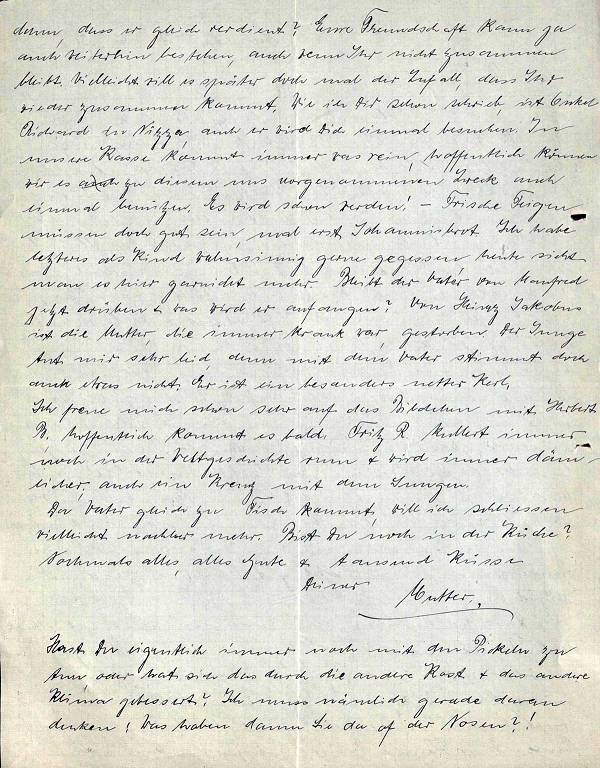 denn, dass er gleich verdient? Eure Freundschaft kann ja
auch weiterhin bestehen, auch wenn Ihr nicht zusammen
bleibt. Vielleicht will es später doch mal der Zufall, dass Ihr
wieder zusammen kommt. Wie ich Dir schon schrieb, ist Onkel
Richard in Nizza, auch er wird Dich einmal besuchen. In
unsere Kasse kommt immer was rein, hoffentlich können
wir es zu diesem uns vorgenommenen Zweck auch
einmal benützen. Es wird schon werden! – Frische Feigen
müssen doch gut sein, mal erst Johannisbrot. Ich habe
letzteres als Kind wahnsinnig gerne gegessen heute sieht
man es hier garnicht mehr. Bleibt der Vater von Manfred
jetzt drüben & was wird er anfangen? Von Heinz Jakobus
ist die Mutter, die immer krank war, gestorben. Der Junge
tut mir sehr leid denn mit dem Vater stimmt doch
auch etwas nicht. Er ist ein besonders netter Kerl.
Ich freue mich schon sehr auf das Bildchen mit Herbert
B. hoffentlich kommt es bald. Fritz R kullert immer
noch in der Weltgeschichte rum & wird immer däm-
licher, auch ein Kreuz mit dem Jungen.
Da Vater gleich zu Tisch kommt, will ich schliessen
vielleicht nachher mehr. Bist Du noch in der Küche?
Nochmals alles, alles Gute & tausend Küsse
Deiner
Mutter.
Hast Du eigentlich immer noch mit den Pickeln zu
tun oder hat sich das durch die andere Kost & das andere
Klima gebessert? Ich muss nämlich gerade daran
denken! Was haben denn Sie da of der Nosen?!